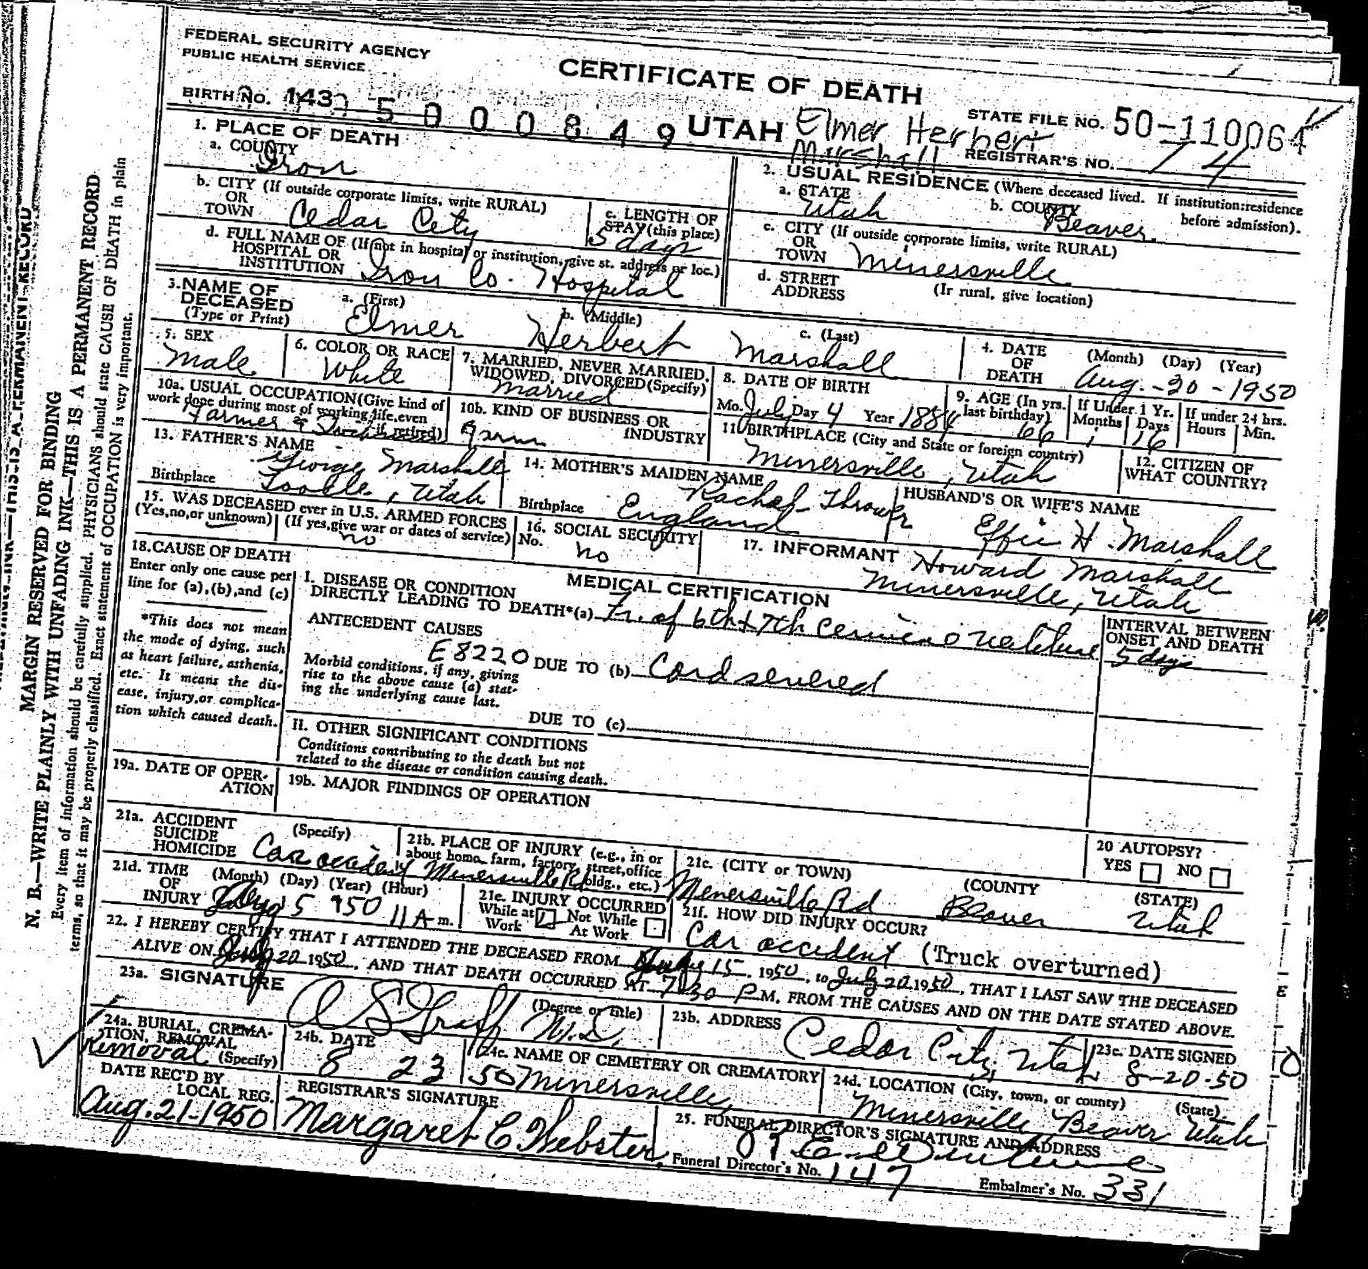 FEDERAL SECURITY AGENCY
PUBLIC HEALTH SERVICE
CERTIFICATE OF DEATH
BIRTH NO. 143
500000849
UTAH
Elmer Herbert
Marshall
STATE FILE NO. 50-110064
REGISTRAR'S NO. 74
1. PLACE OF DEATH
a. COUNTY
Iron
b. CITY (If outside corporate limits, write RURAL)
OR
TOWN Cedar City
c. LENGTH OF
STAY (this place)
5 days
d. FULL NAME OF (If not in hospital or institution, give st. address or loc.)
HOSPITAL OR
INSTITUTION Iron Co. Hospital
2. USUAL RESIDENCE (Where deceased lived. If institution:residence
before admission).
a. STATE
Utah
b. COUNTY
Beaver
c. CITY (If outside corporate limits, write RURAL)
OR
TOWN Minersville
d. STREET
ADDRESS
(Ir rural, give location)
3. NAME OF
DECEASED
(Type or Print)
a. (First)
Elmer
b. (Middle)
Herbert
c. (Last)
Marshall
4. DATE
OF
DEATH
(Month) (Day) (Year)
Aug. - 20 - 1950
5. SEX
Male
6. COLOR OR RACE
White
7. MARRIED, NEVER MARRIED,
WIDOWED, DIVORCED (Specify)
Married
8. DATE OF BIRTH
Mo. July Day 4 Year 1884
9. AGE (In yrs.
last birthday)
66
If Under 1 Yr.
Months Days
1 16
If under 24 hrs.
Hours Min.
10a. USUAL OCCUPATION (Give kind of
work done during most of working life, even
if retired)
Farmer &
10b. KIND OF BUSINESS OR
INDUSTRY
Farm
11. BIRTHPLACE (City and State or foreign country)
Minersville, Utah
12. CITIZEN OF
WHAT COUNTRY?
13. FATHER'S NAME
George Marshall
Birthplace Tooele, Utah
14. MOTHER'S MAIDEN NAME
Rachel Thrower
Birthplace England
HUSBAND'S OR WIFE'S NAME
Effie H. Marshall
15. WAS DECEASED ever in U.S. ARMED FORCES
(Yes, no, or unknown) (If yes, give war or dates of service)
no
16. SOCIAL SECURITY
No. no
17. INFORMANT Howard Marshall
Minersville, Utah
18. CAUSE OF DEATH
Enter only one cause per
line for (a), (b), and (c)
*This does not mean
the mode of dying, such
as heart failure, asthenia,
etc. It means the dis-
ease, injury, or complica-
tion which caused death.
MEDICAL CERTIFICATION
I. DISEASE OR CONDITION
DIRECTLY LEADING TO DEATH*(a) Fr. of 6th & 7th
INTERVAL BETWEEN
ONSET AND DEATH
5 days
ANTECEDENT CAUSES
E8220
Morbid conditions, if any, giving
rise to the above cause (a) stat-
ing the underlying cause last.
DUE TO (b) Cord severed
DUE TO (c)
II. OTHER SIGNIFICANT CONDITIONS
Conditions contributing to the death but not
related to the disease or condition causing death.
19a. DATE OF OPER-
ATION
19b. MAJOR FINDINGS OF OPERATION
20 AUTOPSY?
YES NO
21a. ACCIDENT
SUICIDE
HOMICIDE
(Specify)
Car accident
21b. PLACE OF INJURY (e.g., in or
about home, farm, factory, street, office
bldg., etc.)
Minersville Rd
21c. (CITY OR TOWN) (COUNTY (STATE)
Minersville Rd Beaver Utah
21d. TIME
OF
INJURY
(Month) (Day) (Year) (Hour)
15 1950 11 A m.
21e. INJURY OCCURRED
While at
Work
Not While
At Work
21f. HOW DID INJURY OCCUR?
Car accident (Truck overturned)
22. I HEREBY CERTIFY THAT I ATTENDED THE DECEASED FROM 15, 1950, to July 20, 1950, THAT I LAST SAW THE DECEASED
ALIVE ON 20 1950, AND THAT DEATH OCCURRED AT 7:30 P.M. FROM THE CAUSES AND ON THE DATE STATED ABOVE.
23a. SIGNATURE
(Degree or title)
M.D.
23b. ADDRESS
Cedar City, Utah
23c. DATE SIGNED
8-20-50
24a. BURIAL, CREMA-
TION, REMOVAL
(Specify)
Removal
24b. DATE
8 23 50
24c. NAME OF CEMETERY OR CREMATORY
Minersville
24d. LOCATION (City, town, or county) (State)
Minersville Beaver Utah
DATE REC'D BY
LOCAL REG.
Aug. 21-1950
REGISTRAR'S SIGNATURE
Margaret C Webster
25. FUNERAL DIRECTOR'S SIGNATURE AND ADDRESS
Funeral Director's No. 147
Embalmer's No. 331
MARGIN RESERVED FOR BINDING
N. B.—WRITE PLAINLY WITH UNFADING INK—THIS IS A PERMANENT RECORD
Every item of information should be carefully supplied. PHYSICIANS should state CAUSE OF DEATH in plain
terms, so that it may be properly classified. Exact statement of OCCUPATION is very important.